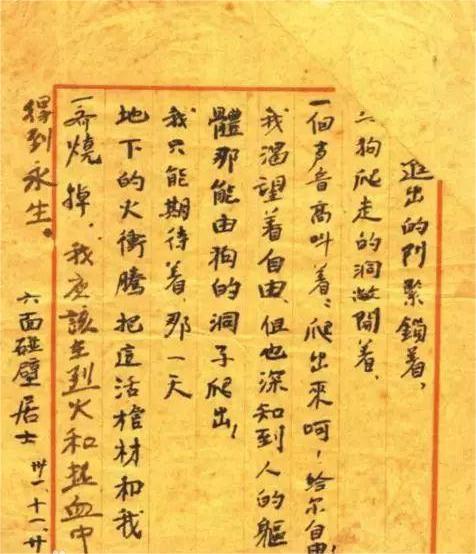 出的門緊鎖着,
狗爬走的洞敞開着,
一個声音高叫着:爬出來呵,給尔自由!
我渴望着自由,但也深知到人的軀
體那能由狗的洞子爬出!
我只能期待着,那一天
地下的火衝騰把這活棺材和我
一齊燒掉,我应該在烈火和热血中
得到永生。
六面碰壁居士
卅一、十一、廿